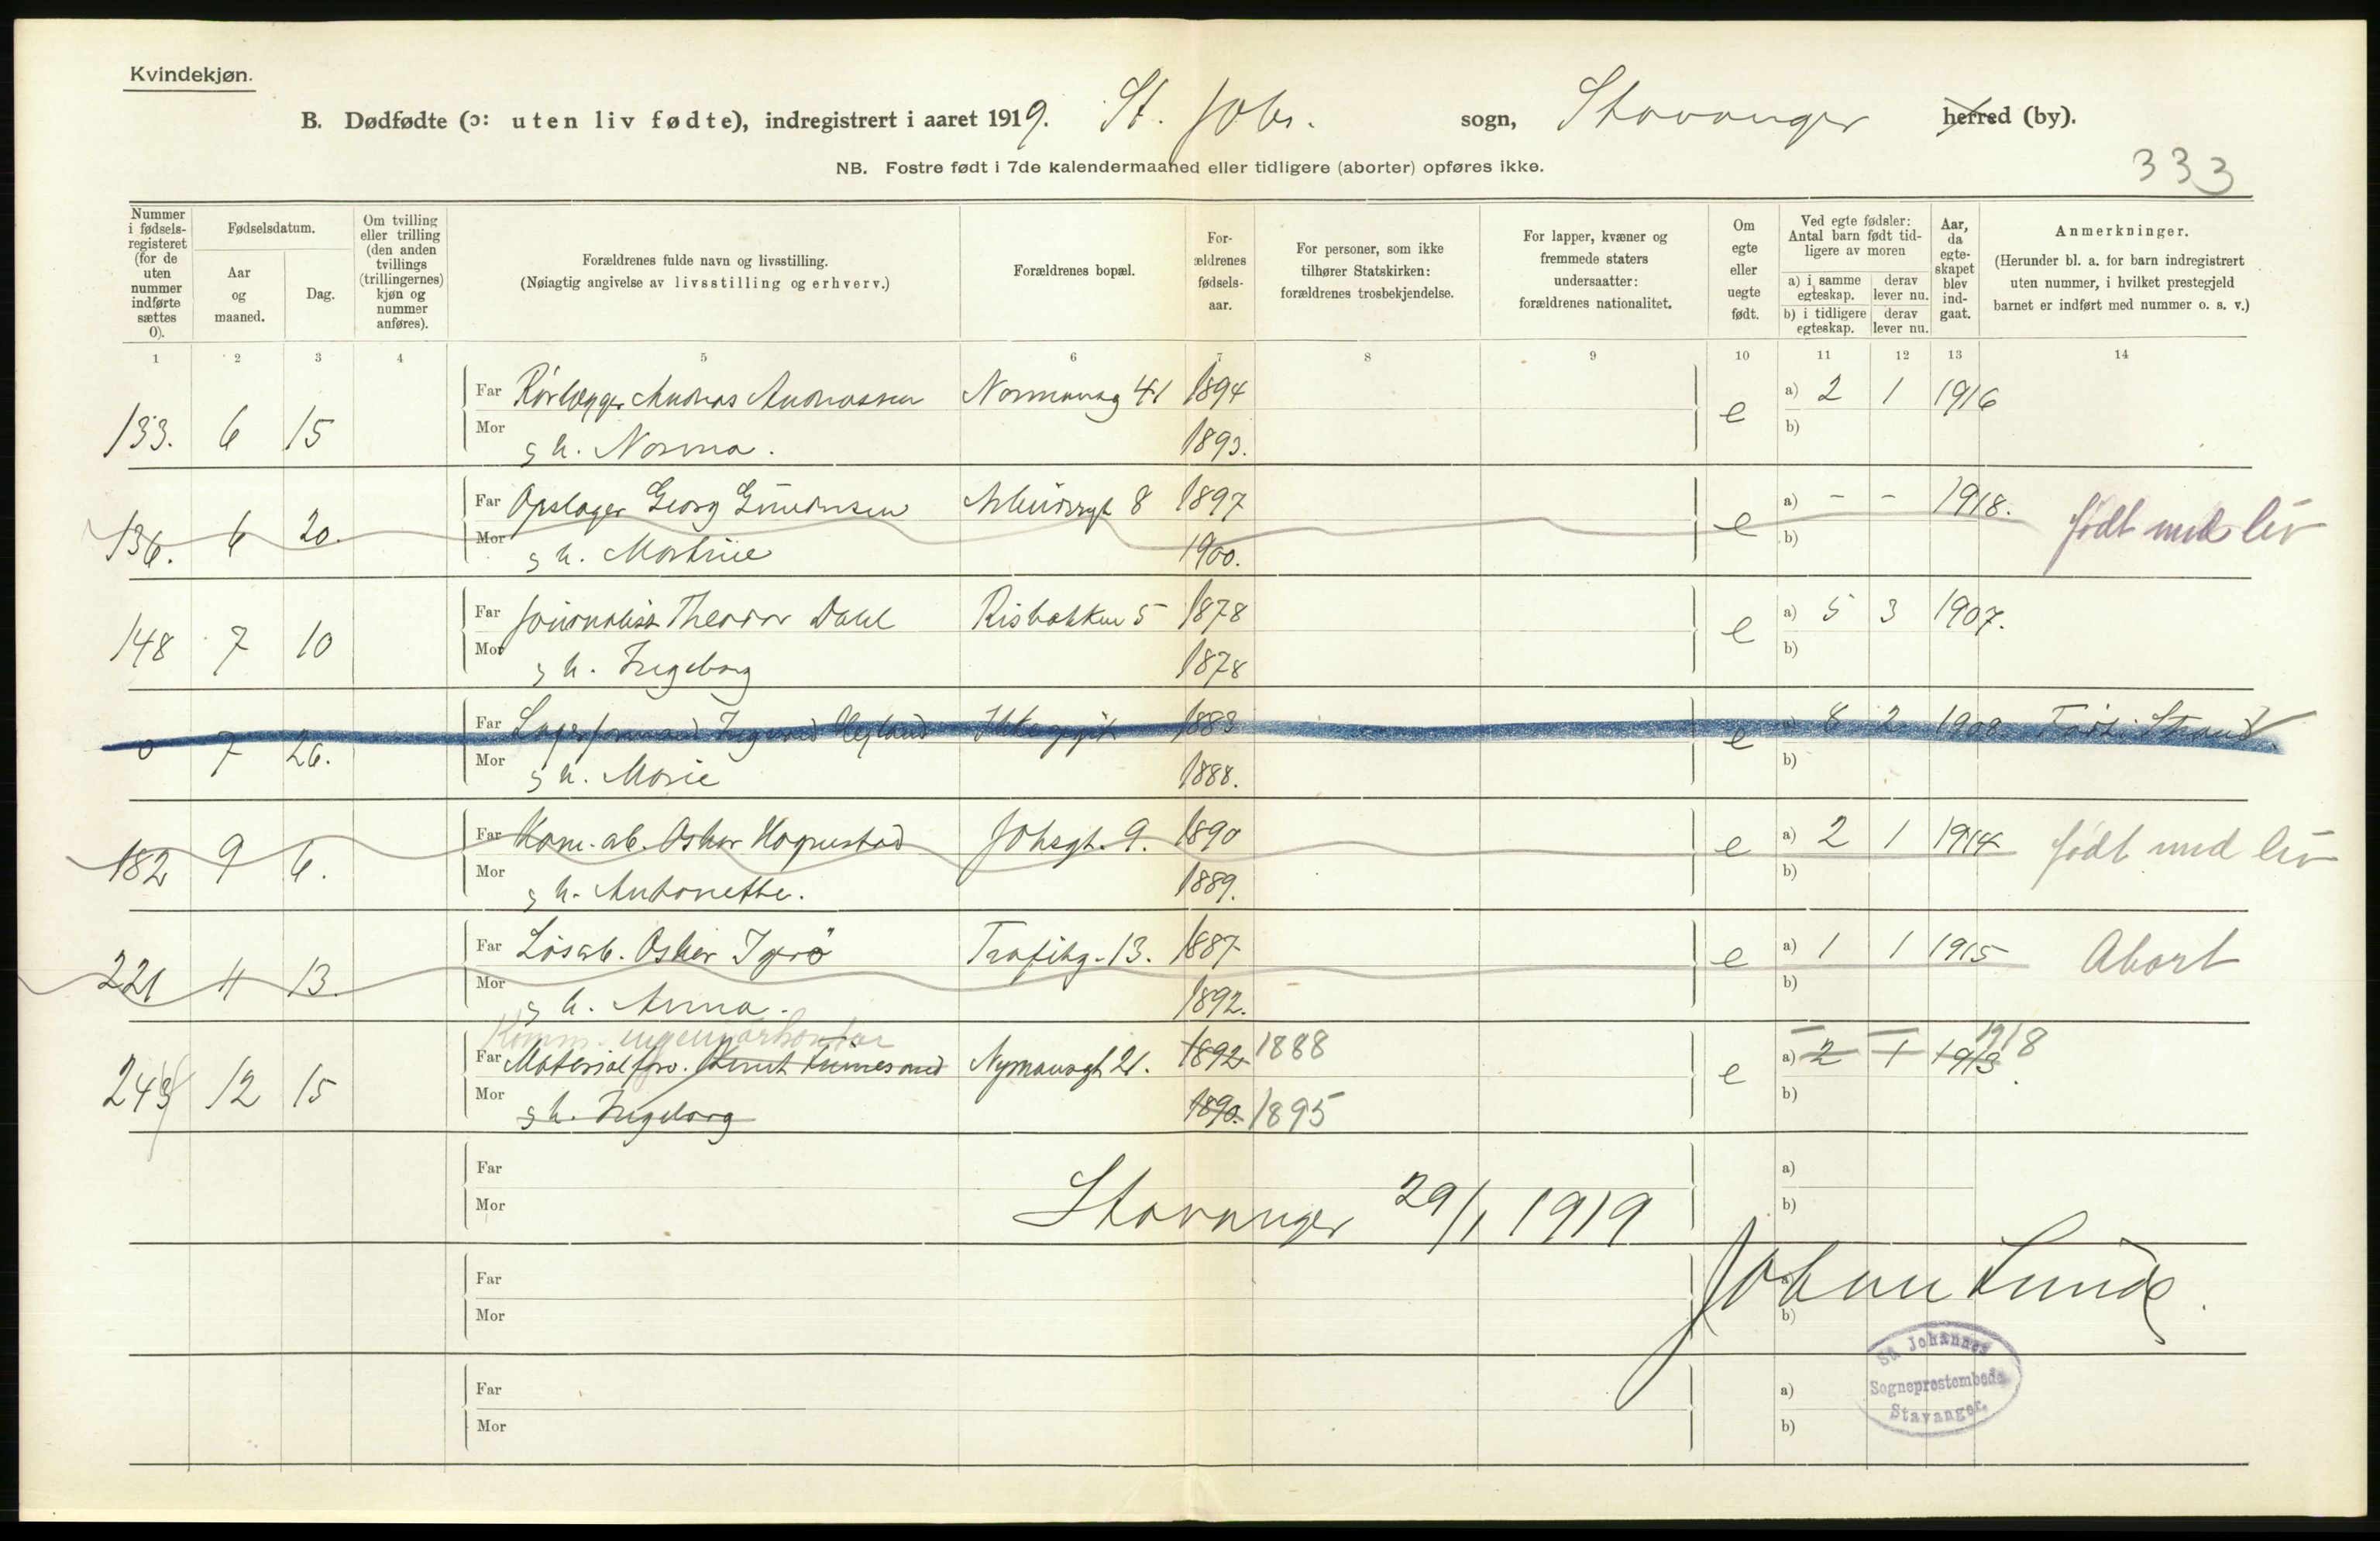 Kvindekjøn.
B. Dødfødte (ɔ: uten liv fødte), indregistrert i aaret 1919. St. Johs. sogn, Stavanger herred (by).
NB. Fostre født i 7de kalendermaaned eller tidligere (aborter) opføres ikke.
333
Nummer i fødselsregisteret (for de uten nummer indførte sættes 0).
Fødselsdatum.
Aar og maaned.
Dag.
Om tvilling eller trilling (den anden tvillings (trillingernes) kjøn og nummer anføres).
Forældrenes fulde navn og livsstilling.
(Nøiagtig angivelse av livsstilling og erhverv.)
Forældrenes bopæl.
Forældrenes fødselsaar.
For personer, som ikke tilhører Statskirken: forældrenes trosbekjendelse.
For lapper, kvæner og fremmede staters undersaatter: forældrenes nationalitet.
Om egte eller uegte født.
Ved egte fødsler: Antal barn født tidligere av moren
a) i samme egteskap. derav lever nu.
b) i tidligere egteskap. derav lever nu.
Aar, da egteskapet blev indgaat.
Anmerkninger.
(Herunder bl. a. for barn indregistrert uten nummer, i hvilket prestegjeld barnet er indført med nummer o. s. v.)
1 2 3 4 5 6 7 8 9 10 11 12 13 14
133. 6 15 Far Rørlægger Andreas Andreassen 41 1894 e a) 2 1 1916
Mor g h. Norma. 1893. b)
136. 6 20. Far Georg 8 1897 e a) - - 1918. født med liv
Mor g h. 1900. b)
148 7 10 Far Journalist Theodor Dahl Risbakken 5 1878 e a) 5 3 1907.
Mor g h. Ingeborg 1878 b)
0 7 26. Far 1883 e a) 8 2 1908 Strand.
Mor g h. Marie 1888. b)
182 9 6. Far Kom. ab. Oskar Hognestad Johsgt. 9. 1890 e a) 2 1 1914 født med liv
Mor g h. Antonette. 1889. b)
221 11 13. Far Løsarb. Oskar 13. 1887 e a) 1 1 1915 Abort
Mor g h. Anna. 1892. b)
Komm. ingeniørkontor
243 12 15 Far Materialforv. Nymansgt 21. 1892 1888 e a) 2 1 1913. 1918
Mor g h. Ingeborg 1890. 1895 b)
Far a)
Mor Stavanger 29/1 1919 b)
Far a) Johan Lunde.
Mor b)
St. Johannes
Sogneprestembede
Stavanger.
Far a)
Mor b)